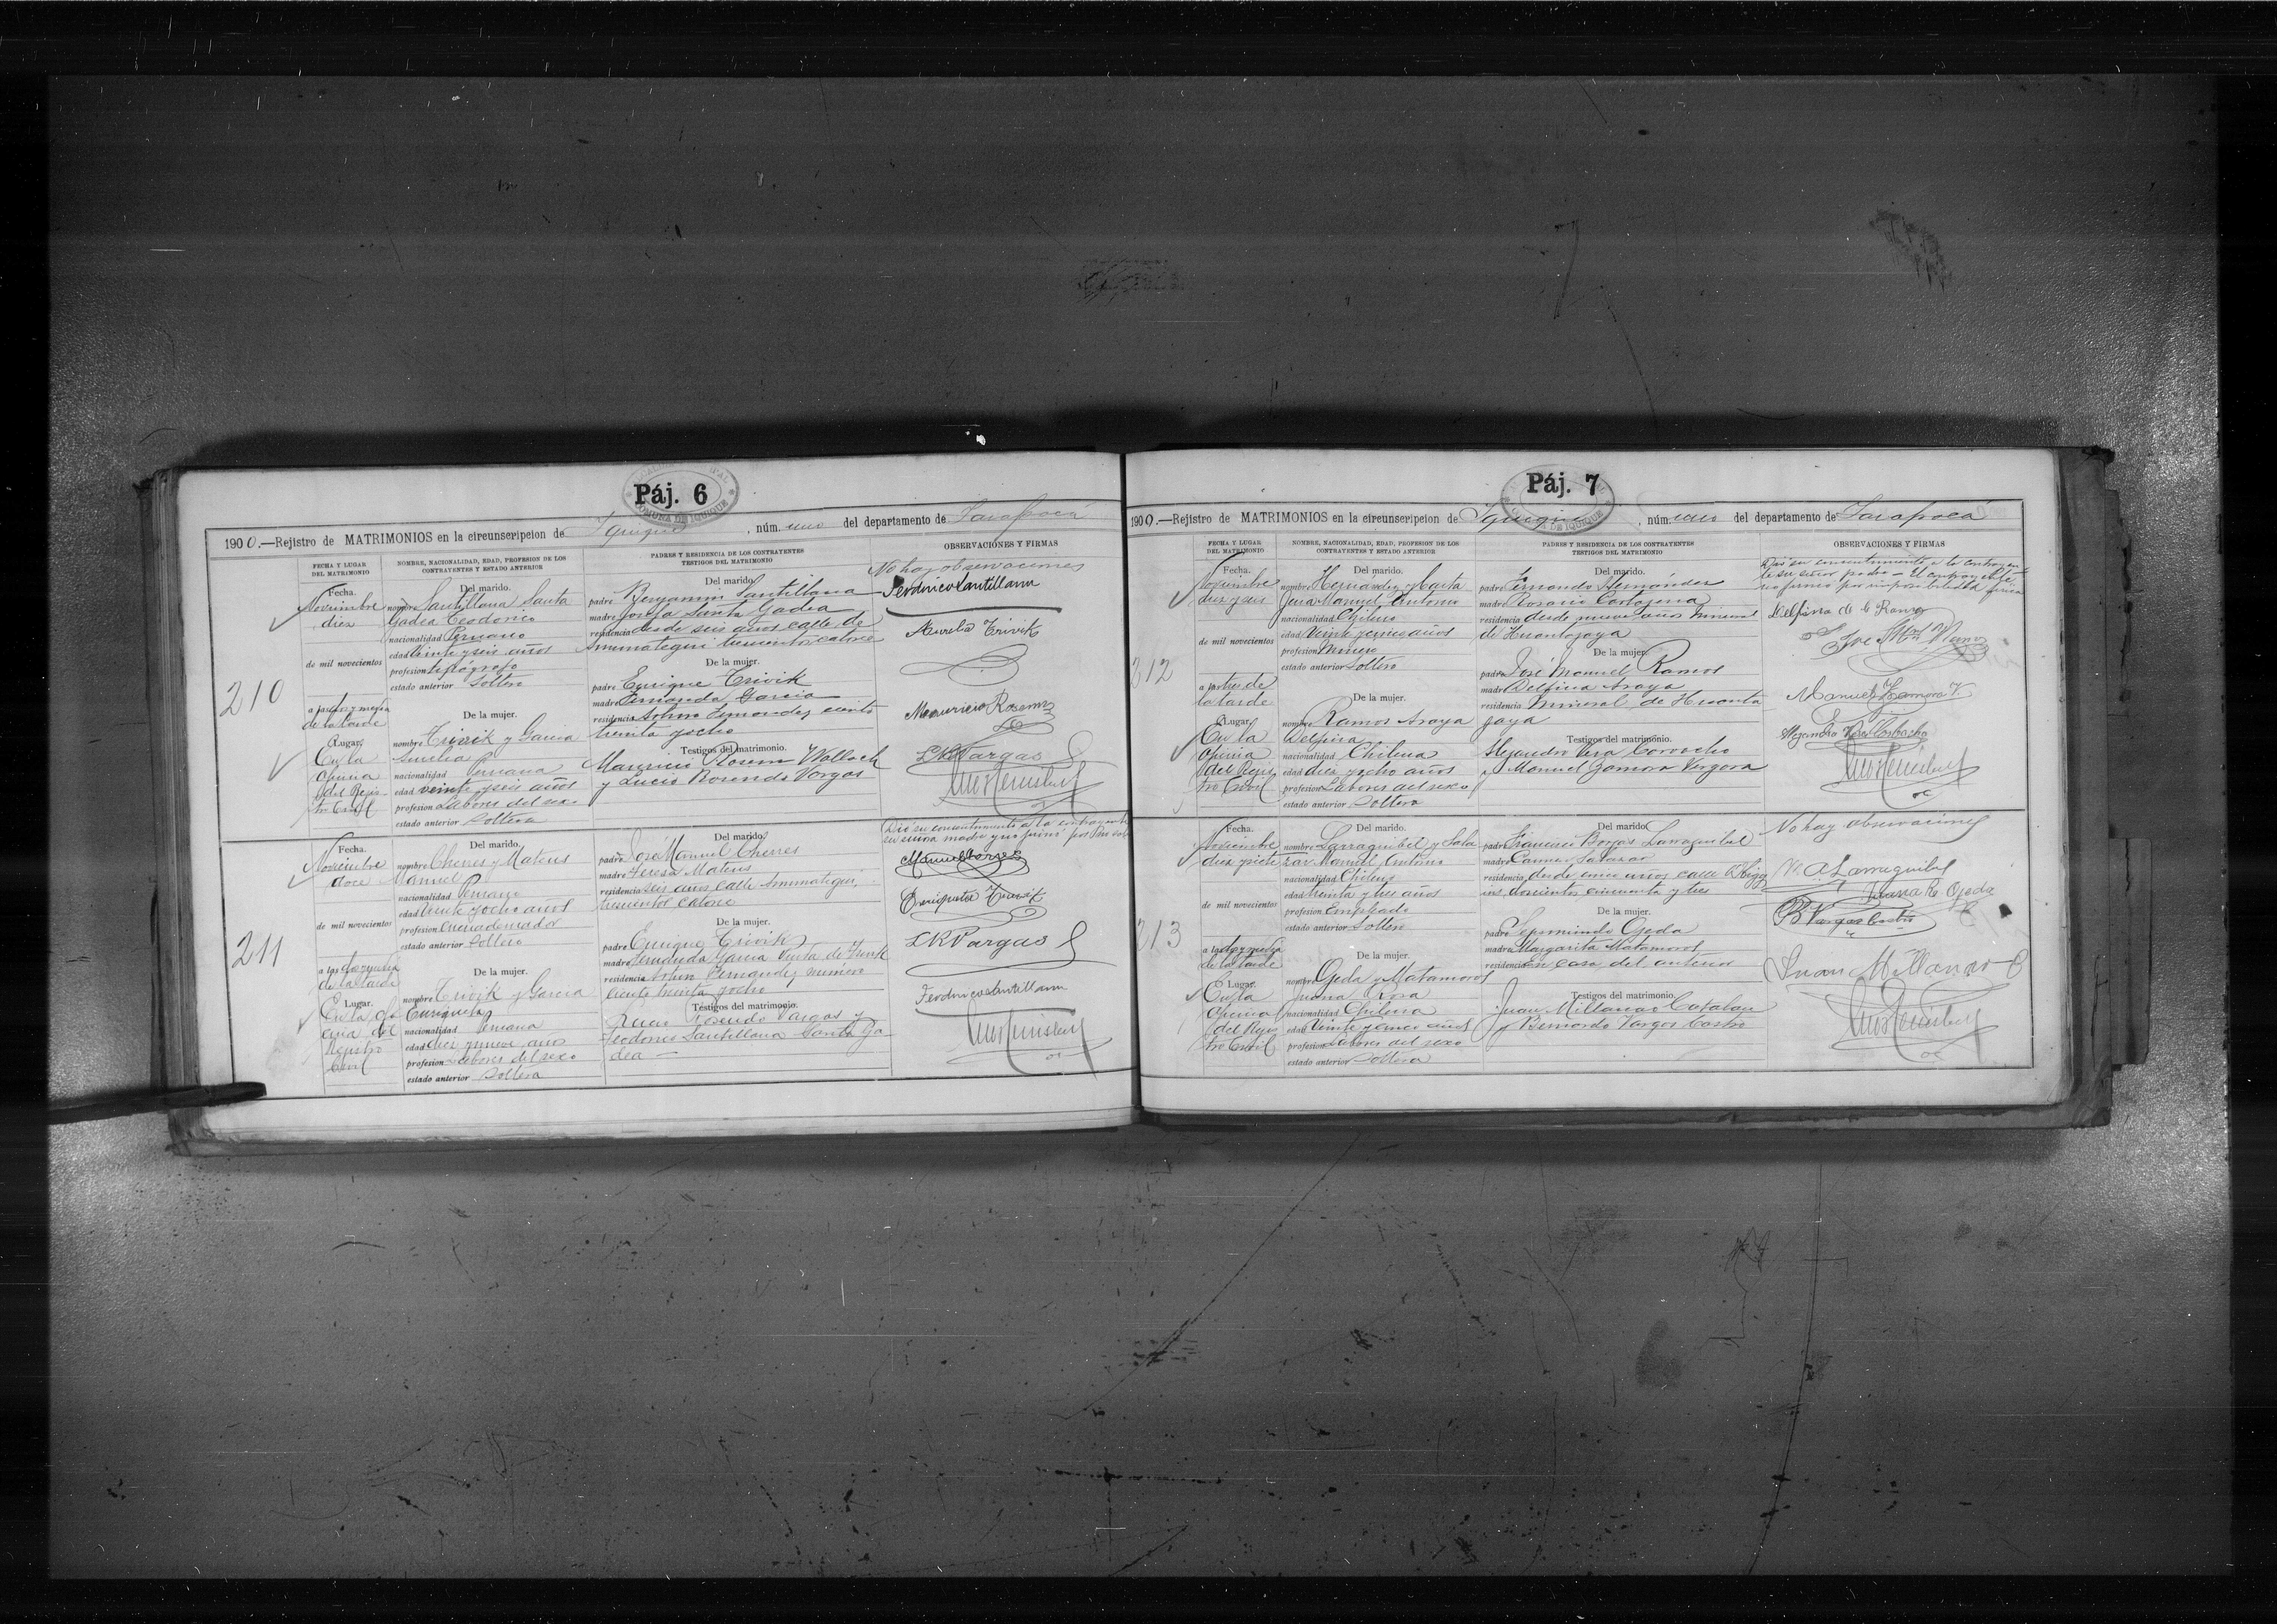 Páj. 6
1900.—Rejistro de MATRIMONIOS en la circunscripcion de Iquique, núm. uno del departamento de Tarapacá
FECHA Y LUGAR DEL MATRIMONIO
NOMBRE, NACIONALIDAD, EDAD, PROFESION DE LOS CONTRAYENTES Y ESTADO ANTERIOR
PADRES Y RESIDENCIA DE LOS CONTRAYENTES TESTIGOS DEL MATRIMONIO
OBSERVACIONES Y FIRMAS
210
Fecha.
Noviembre
diez
de mil novecientos
de la tarde
Lugar.
En la
oficina
del Rejis-
tro Civil
Del marido.
nombre Santillana Santa
Gadea Teodorico
nacionalidad Peruano
edad Veinte y seis años
profesion tipógrafo
estado anterior Soltero
De la mujer.
nombre Trivik y Garcia
Aurelia
nacionalidad Peruana
edad veinte y seis años
profesion Labores del sexo
estado anterior Soltera
Del marido.
padre Benjamin Santillana
madre Josefa Santa Gadea
residencia desde seis años calle de
Amunategui trescientos catorce
De la mujer.
padre Enrique Trivik
madre Fernanda Garcia
residencia Arturo Fernandez ciento
treinta y ocho
Testigos del matrimonio.
Mauricio Rosenn Wallach
y Lucio Rosendo Vargas
No hay observaciones
Teodorico Santillana
Aurelia Trivik
Mauricio Rosenn
L R Vargas
211
Fecha.
Noviembre
doce
de mil novecientos
a las dos y media
de la tarde
Lugar.
En la ofi
cina del
Rejistro
Civil
Del marido.
nombre Cherres y Mateus
Manuel
nacionalidad Peruano
edad Veinte y ocho años
profesion encuadernador
estado anterior Soltero
De la mujer.
nombre Trivik y Garcia
Enriqueta
nacionalidad Peruana
edad diez y nueve años
profesion Labores del sexo
estado anterior Soltera
Del marido.
padre José Manuel Cherres
madre Teresa Mateus
residencia seis años calle Amunategui,
trescientos catorce
De la mujer.
padre Enrique Trivik
madre Fernanda Garcia Viuda de Trivik
residencia Arturo Fernandez numero
ciento treinta y ocho
Testigos del matrimonio.
Rosendo Vargas y
Teodorico Santillana Santa Ga
dea —
Dió su consentimiento a la contrayente
Enriqueta Trivik
L R Vargas
Teodorico Santillana
Páj. 7
1900.—Rejistro de MATRIMONIOS en la circunscripcion de Iquique, núm. uno del departamento de Tarapacá
FECHA Y LUGAR DEL MATRIMONIO
NOMBRE, NACIONALIDAD, EDAD, PROFESION DE LOS CONTRAYENTES Y ESTADO ANTERIOR
PADRES Y RESIDENCIA DE LOS CONTRAYENTES TESTIGOS DEL MATRIMONIO
OBSERVACIONES Y FIRMAS
212
Fecha.
Noviembre
diez y seis
de mil novecientos
a las tres de
la tarde
Lugar.
En la
oficina
del Rejis
tro Civil
Del marido.
nombre Hernández y Carta
jena Manuel Antonio
nacionalidad Chileno
edad Veinte y cinco años
profesion Minero
estado anterior Soltero
De la mujer.
nombre Ramos Araya
Delfina
nacionalidad Chilena
edad diez y ocho años
profesion Labores del sexo
estado anterior Soltera
Del marido.
padre Fernando Hernández
madre Rosario Cartajena
residencia desde nueve años Mineral
de Huantajaya
De la mujer.
padre José Manuel Ramos
madre Delfina Araya
residencia Mineral de Huanta
jaya
Testigos del matrimonio.
Alejandro Vera Corvacho
y Manuel Zamora Vergara
Dió su consentimiento a la contrayen
te su señor padre — El contrayente
no firmó por imposibilidad física
Delfina de C Ramos
Manuel Zamora V.
213
Fecha.
Noviembre
diez y siete
de mil novecientos
a las dos y media
de la tarde
Lugar.
En la
oficina
del Rejis
tro Civil
Del marido.
nombre Larraguibel y Sala
zar Manuel Antonio
nacionalidad Chileno
edad treinta y tres años
profesion Empleado
estado anterior Soltero
De la mujer.
nombre Ojeda y Matamoros
Juana Rosa
nacionalidad Chilena
edad Veinte y cinco años
profesion Labores del sexo
estado anterior Soltera
Del marido.
padre Francisco Borjas Larraguibel
madre Carmen Salazar
residencia desde cinco años calle O'Higg
ins doscientos cincuenta y tres
De la mujer.
padre Ojeda
madre Margarita Matamoros
residencia En casa del anterior
Testigos del matrimonio.
Juan Millanao Catalan
y Bernardo Vargas Castro
No hay observaciones
M. A. Larraguibel
Juana R. Ojeda
B Vargas Castro
Juan Millanao C